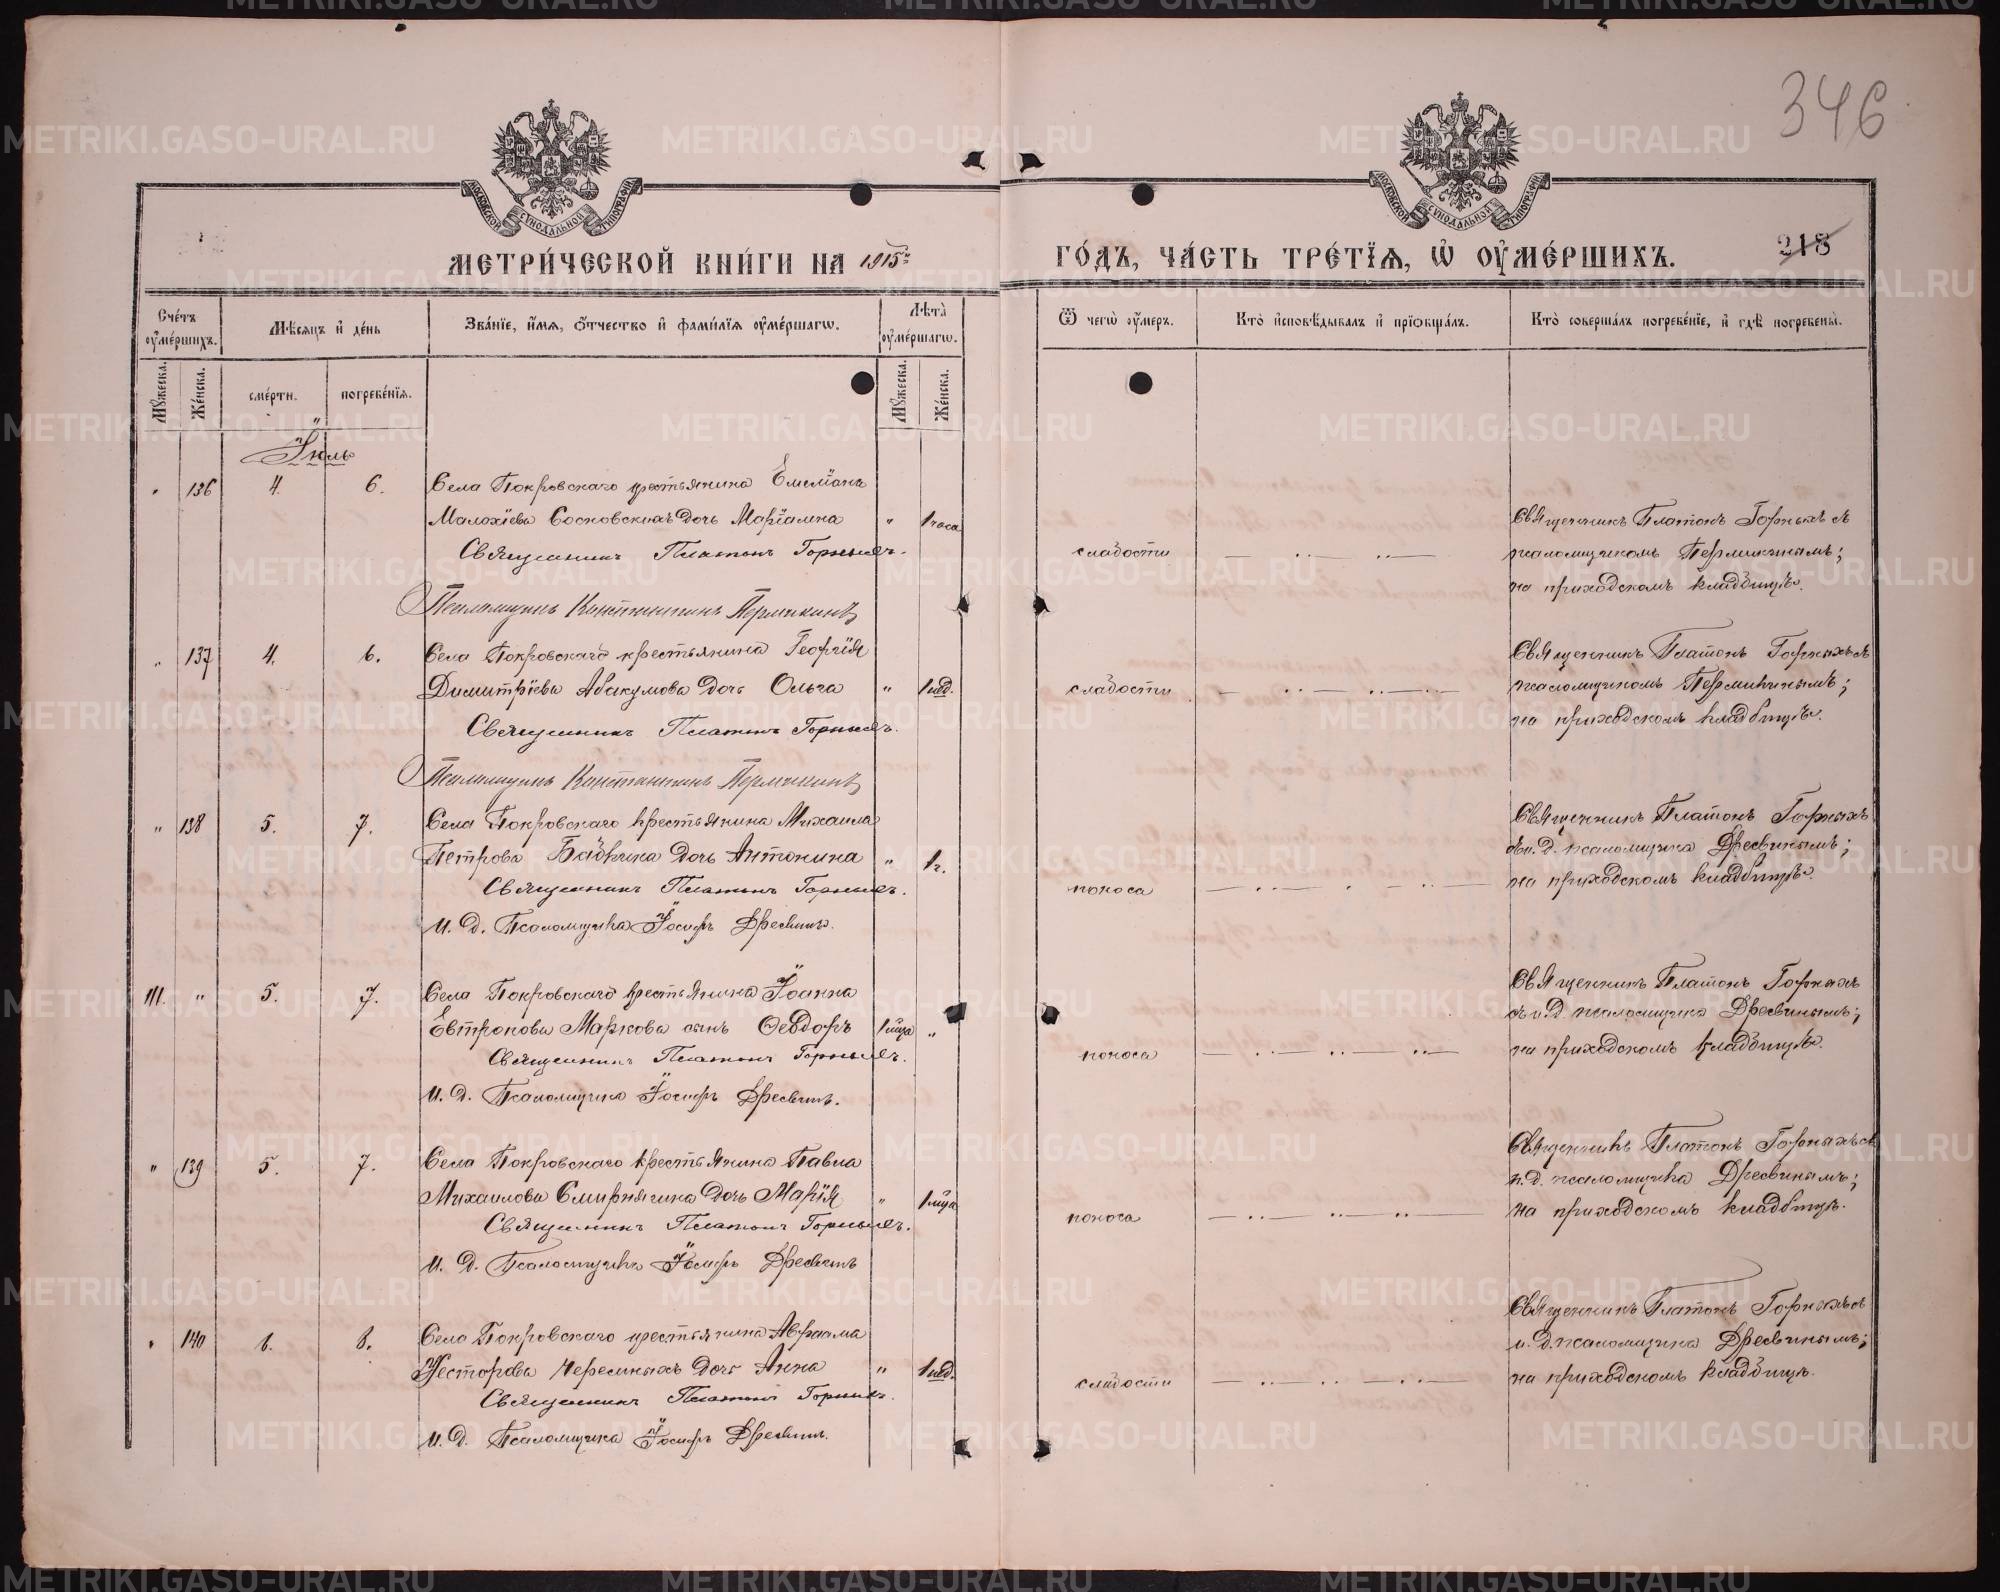 346
МОСКОВСКОЙ СѴНОДАЛЬНОЙ ТИПОГРАФИИ
МОСКОВСКОЙ СѴНОДАЛЬНОЙ ТИПОГРАФИИ
МЕТРИ́ЧЕСКОЙ КНИ́ГИ НА 1915й
ГО́ДЪ, ЧА́СТЬ ТРЕ́ТЇѦ, Ѡ҆ ОУ҆МЕ́РШИХЪ.
218
Сче́тъ оу҆ме́ршихъ.
Мѣ́сяцъ и҆ де́нь
Зва́нїе, и҆́мя, ѻ҆́тчество и҆ фами́лїя оу҆ме́ршагѡ.
Лѣ́та оу҆ме́ршагѡ.
Ѿ чегѡ̀ оу҆́меръ.
Кто̀ и҆сповѣ́дывалъ и҆ прїѡбща́лъ.
Кто̀ соверша́лъ погребе́нїе, и҆ гдѣ̀ погребены̀.
Мꙋ́жеска.
Же́нска.
сме́рти.
погребе́нїя.
Мꙋ́жеска.
Же́нска.
Іюль
" 136 4. 6. Села Покровскаго крестьянина Емелiана
Малахiева Сосновскихъ дочь Марiамна " 1 часа
Священникъ Платонъ Горныхъ.
Псаломщикъ Константинъ Пермикинъ
слабости
Священникъ Платонъ Горныхъ съ
псаломщикомъ Пермикинымъ;
на приходскомъ кладбищѣ.
" 137 4. 6. Села Покровскаго крестьянина Георгiя
Димитрiева Абакумова дочь Ольга " 1 нед.
Священникъ Платонъ Горныхъ.
Псаломщикъ Константинъ Пермикинъ
слабости
Священникъ Платонъ Горныхъ съ
псаломщикомъ Пермикинымъ;
на приходскомъ кладбищѣ.
" 138 5. 7. Села Покровскаго крестьянина Михаила
Петрова Бабкина дочь Антонина " 1 г.
Священникъ Платонъ Горныхъ.
И. д. Псаломщика Іосифъ Дресвинъ.
поноса
Священникъ Платонъ Горныхъ
съ и. д. псаломщика Дресвинымъ;
на приходскомъ кладбищѣ.
111. " 5. 7. Села Покровскаго крестьянина Іоанна
Евтропова Маркова сынъ Ѳеодоръ 1 мца "
Священникъ Платонъ Горныхъ.
И. д. Псаломщика Іосифъ Дресвинъ.
поноса
Священникъ Платонъ Горныхъ
съ и. д. псаломщика Дресвинымъ;
на приходскомъ кладбищѣ.
" 139 5. 7. Села Покровскаго крестьянина Павла
Михаилова Смирнягина дочь Марiя " 1 мца
Священникъ Платонъ Горныхъ.
И. д. Псаломщика Іосифъ Дресвинъ
поноса
Священникъ Платонъ Горныхъ съ
и. д. псаломщика Дресвинымъ;
на приходскомъ кладбищѣ.
" 140 6. 8. Села Покровскаго крестьянина Авраама
Несторова Черемныхъ дочь Анна " 1 нед.
Священникъ Платонъ Горныхъ.
И. д. Псаломщика Іосифъ Дресвинъ.
слабости
Священникъ Платонъ Горныхъ съ
и. д. псаломщика Дресвинымъ;
на приходскомъ кладбищѣ.
METRIKI.GASO-URAL.RU